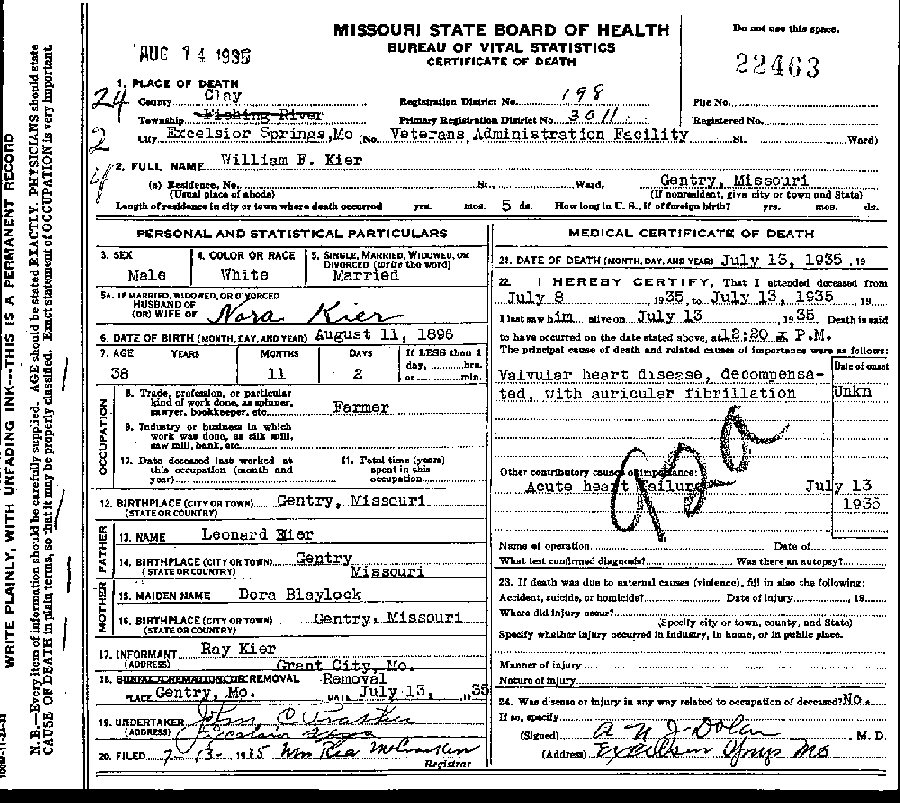 MISSOURI STATE BOARD OF HEALTH
BUREAU OF VITAL STATISTICS
CERTIFICATE OF DEATH
Do not use this space.
AUG 14 1935
22463
1. PLACE OF DEATH
County Clay
Registration District No. 198
File No.
Township Fishing River
Primary Registration District No. 3011
Registered No.
City Excelsior Springs, Mo (No. Veterans Administration Facility St. Ward)
24
2
2. FULL NAME William F. Kier
(a) Residence, No. St., Ward. Gentry, Missouri
(Usual place of abode) (If nonresident, give city or town and State)
Length of residence in city or town where death occurred yrs. mos. 5 ds. How long in U. S., if of foreign birth? yrs. mos. ds.
PERSONAL AND STATISTICAL PARTICULARS
3. SEX Male
4. COLOR OR RACE White
5. SINGLE, MARRIED, WIDOWED, OR DIVORCED (write the word) Married
5a. IF MARRIED, WIDOWED, OR DIVORCED
HUSBAND OF
(OR) WIFE OF Nora Kier
6. DATE OF BIRTH (MONTH, DAY, AND YEAR) August 11, 1896
7. AGE YEARS MONTHS DAYS If LESS than 1
day, hrs.
or min.
38 11 2
OCCUPATION
8. Trade, profession, or particular
kind of work done, as spinner,
sawyer, bookkeeper, etc. Farmer
9. Industry or business in which
work was done, as silk mill,
saw mill, bank, etc.
10. Date deceased last worked at
this occupation (month and
year)
11. Total time (years)
spent in this
occupation
12. BIRTHPLACE (CITY OR TOWN) Gentry, Missouri
(STATE OR COUNTRY)
FATHER
13. NAME Leonard Kier
14. BIRTHPLACE (CITY OR TOWN) Gentry
(STATE OR COUNTRY) Missouri
MOTHER
15. MAIDEN NAME Dora Blaylock
16. BIRTHPLACE (CITY OR TOWN) Gentry, Missouri
(STATE OR COUNTRY)
17. INFORMANT Ray Kier
(ADDRESS) Grant City, Mo.
18. BURIAL, CREMATION, OR REMOVAL Removal
PLACE Gentry, Mo. DATE July 13, 1935
19. UNDERTAKER
(ADDRESS) Excelsior Spgs
20. FILED 7-13-1935 Wm Rea McCracken
Registrar
MEDICAL CERTIFICATE OF DEATH
21. DATE OF DEATH (MONTH, DAY, AND YEAR) July 13, 1935, 19
22. I HEREBY CERTIFY, That I attended deceased from
July 8 1935, to July 13, 1935, 19
I last saw him alive on July 13 1935 Death is said
to have occurred on the date stated above, at 12:20 P.M.
The principal cause of death and related causes of importance were as follows:
Date of onset
Valvular heart disease, decompensa-
ted, with auricular fibrillation Unkn
Other contributory causes of importance:
Acute heart failure July 13
1935
Name of operation Date of
What test confirmed diagnosis? Was there an autopsy?
23. If death was due to external causes (violence), fill in also the following:
Accident, suicide, or homicide? Date of injury , 19
Where did injury occur?
(Specify city or town, county, and State)
Specify whether injury occurred in industry, in home, or in public place.
Manner of injury
Nature of injury
24. Was disease or injury in any way related to occupation of deceased? No.
If so, specify
(Signed) , M. D.
(Address) Excelsior Spgs Mo
WRITE PLAINLY, WITH UNFADING INK---THIS IS A PERMANENT RECORD
N. B.—Every item of information should be carefully supplied. AGE should be stated EXACTLY. PHYSICIANS should state
CAUSE OF DEATH in plain terms, so that it may be properly classified. Exact statement of OCCUPATION is very important.